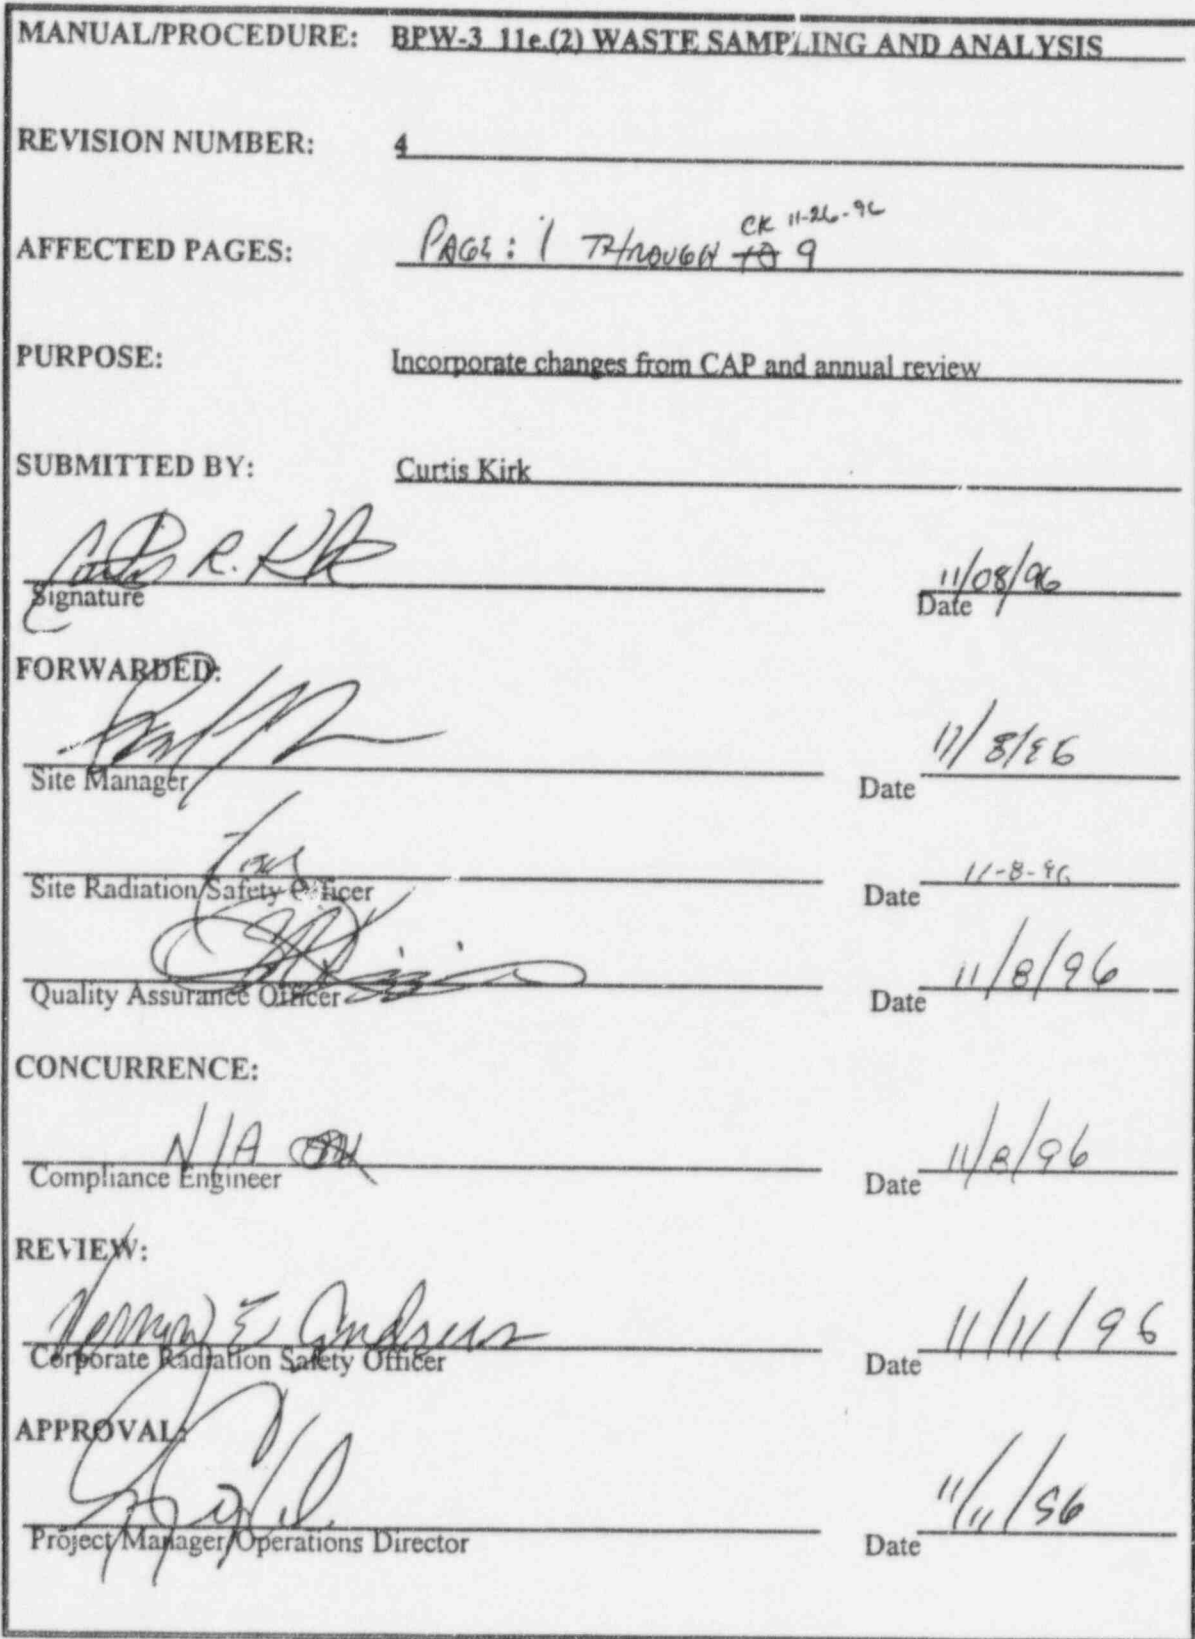 MANUAL/PROCEDURE: BPW-3 11e.(2) WASTE SAMPLING AND ANALYSIS
REVISION NUMBER: 4
CK 11-26-96
AFFECTED PAGES: PAGE: 1 THROUGH TO 9
PURPOSE: Incorporate changes from CAP and annual review
SUBMITTED BY: Curtis Kirk
Curtis R. Kirk 11/08/96
Signature Date
FORWARDED:
11/8/96
Site Manager Date
for 11-8-96
Site Radiation Safety Officer Date
11/8/96
Quality Assurance Officer Date
CONCURRENCE:
N/A 11/8/96
Compliance Engineer Date
REVIEW:
Vernon E. Andrews 11/11/96
Corporate Radiation Safety Officer Date
APPROVAL:
11/11/96
Project Manager/Operations Director Date